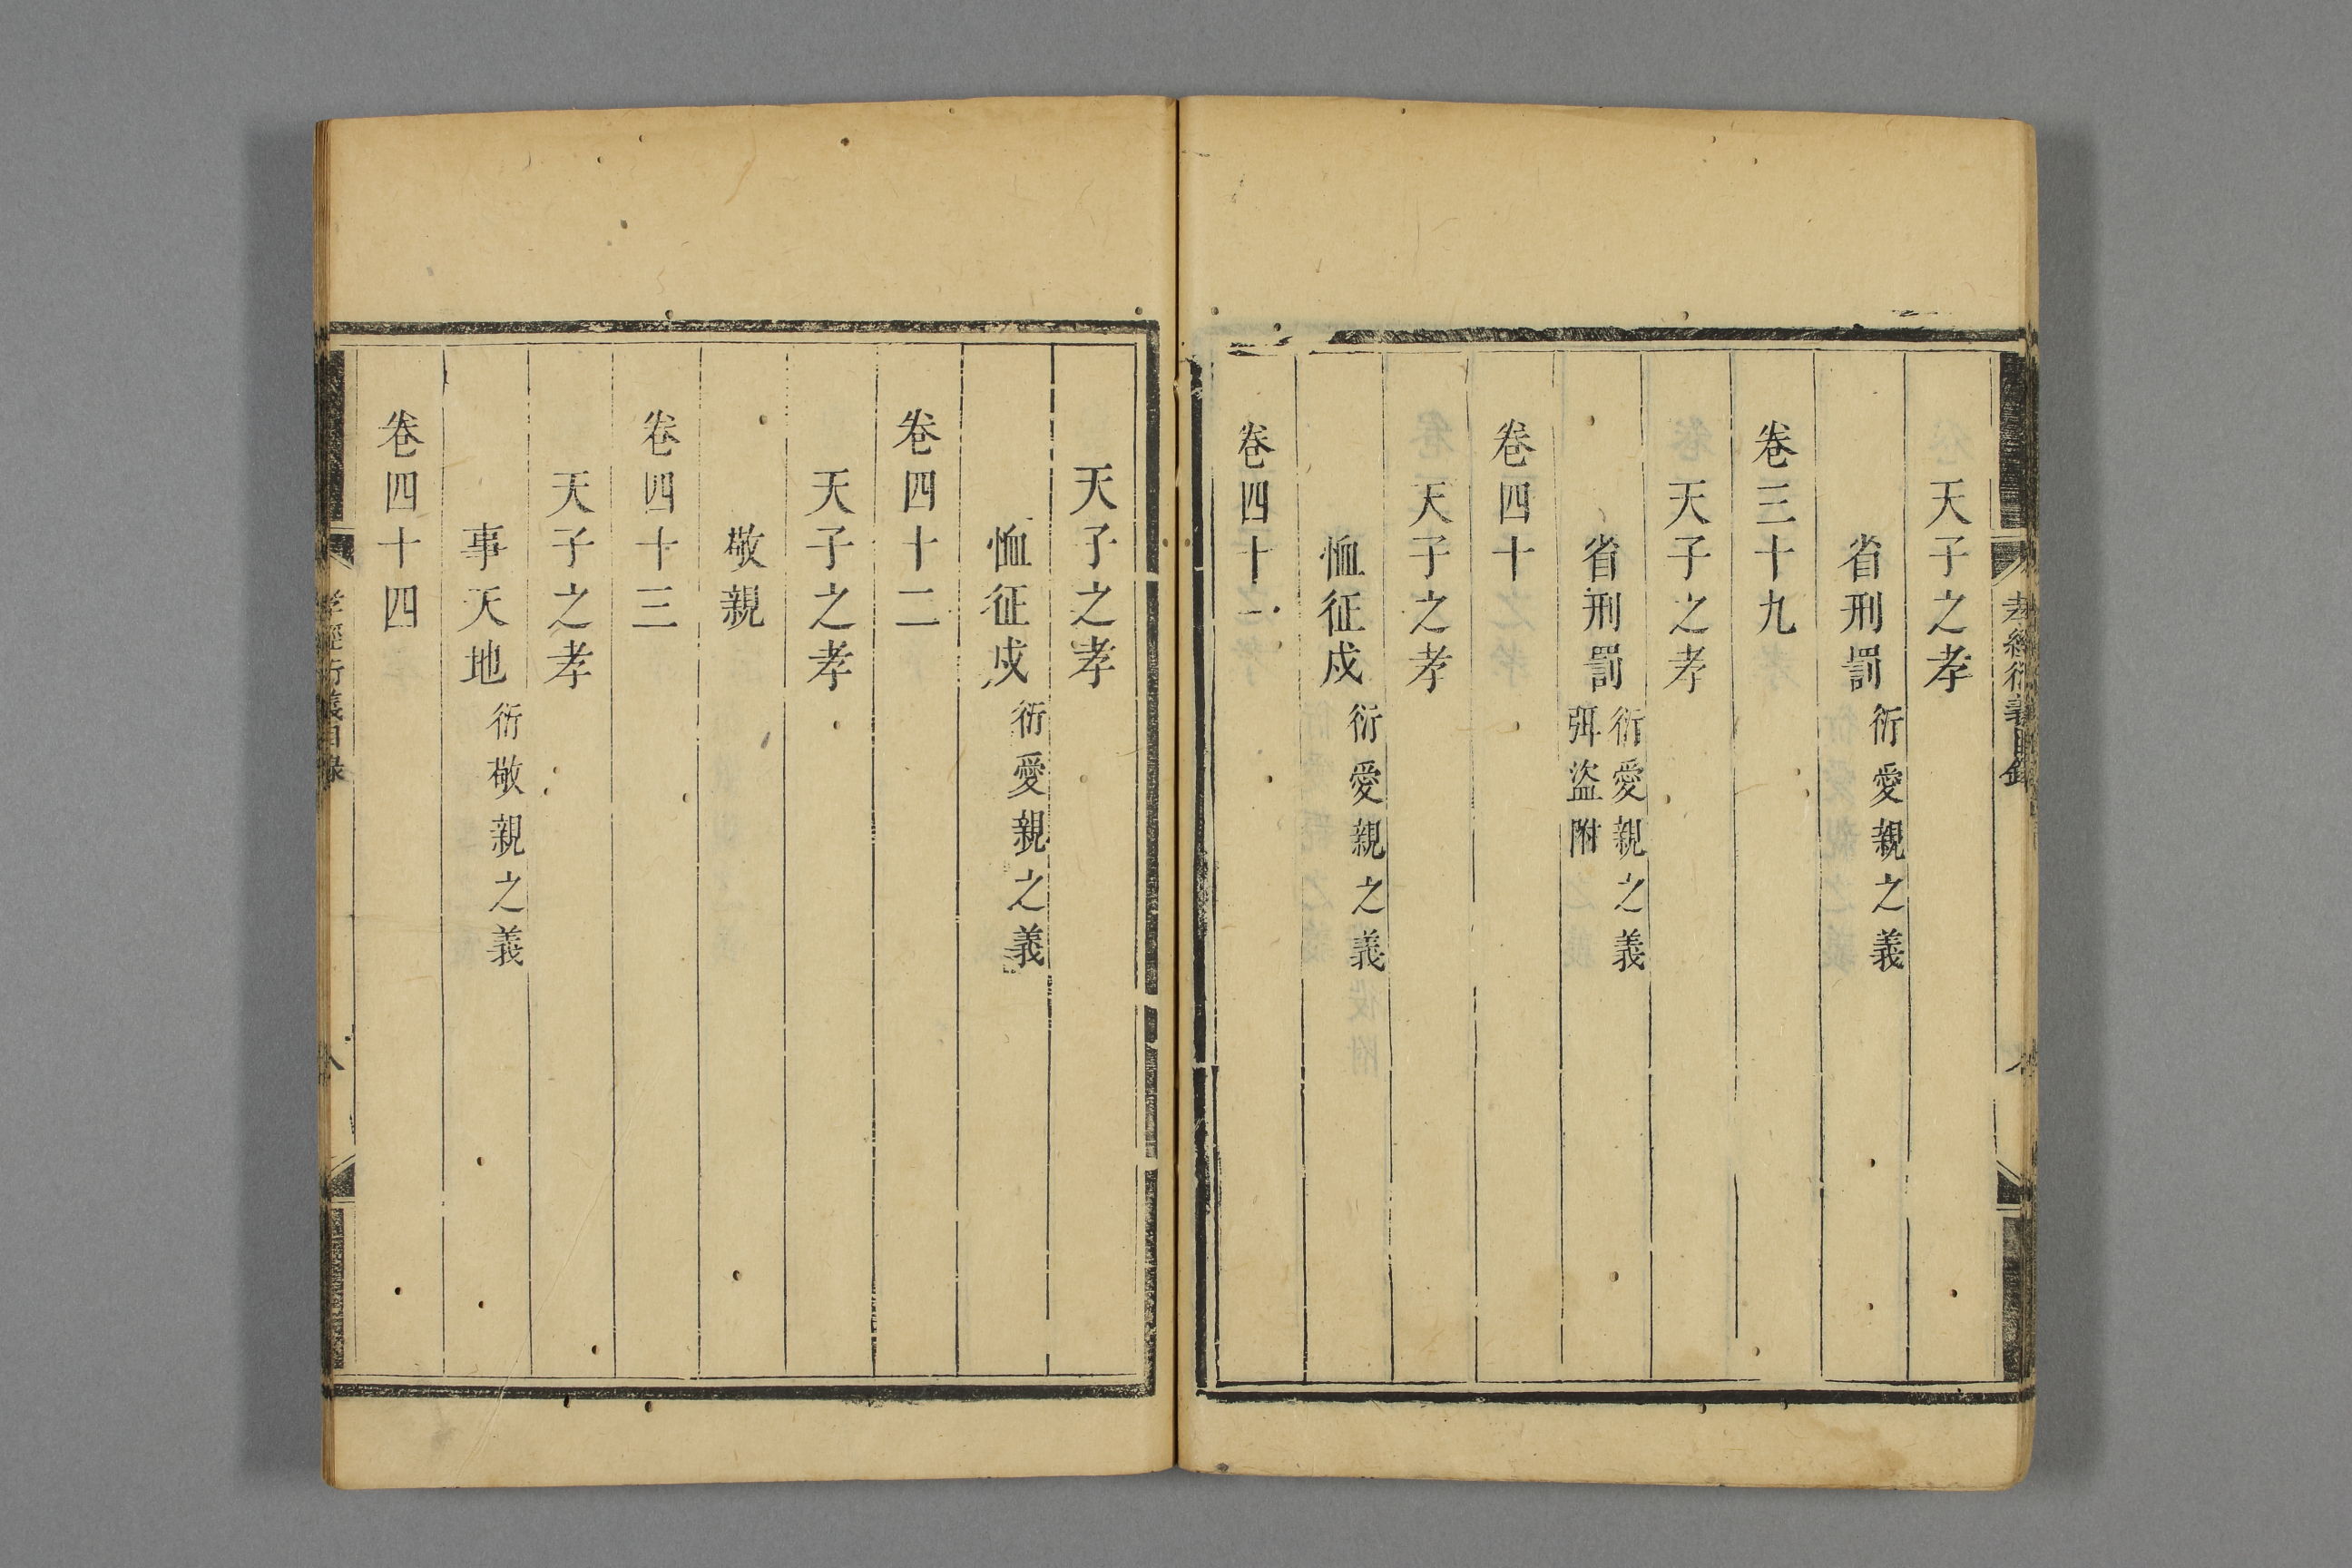 天子之孝
省刑罰衍愛親之義
卷三十九
天子之孝
省刑罰衍愛親之義
弭盜附
卷四十
天子之孝
恤征戍衍愛親之義
卷四十一
天子之孝
恤征戍衍愛親之義
卷四十二
天子之孝
敬親
卷四十三
天子之孝
事天地衍敬親之義
卷四十四
孝經衍義目錄
八